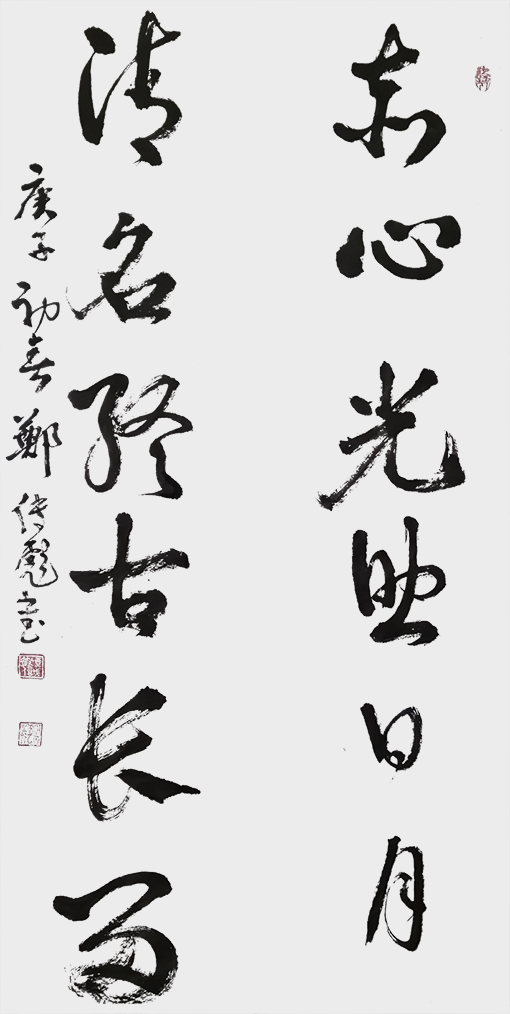 赤心光照日月
清名终古长留
庚子初春鄭传彪